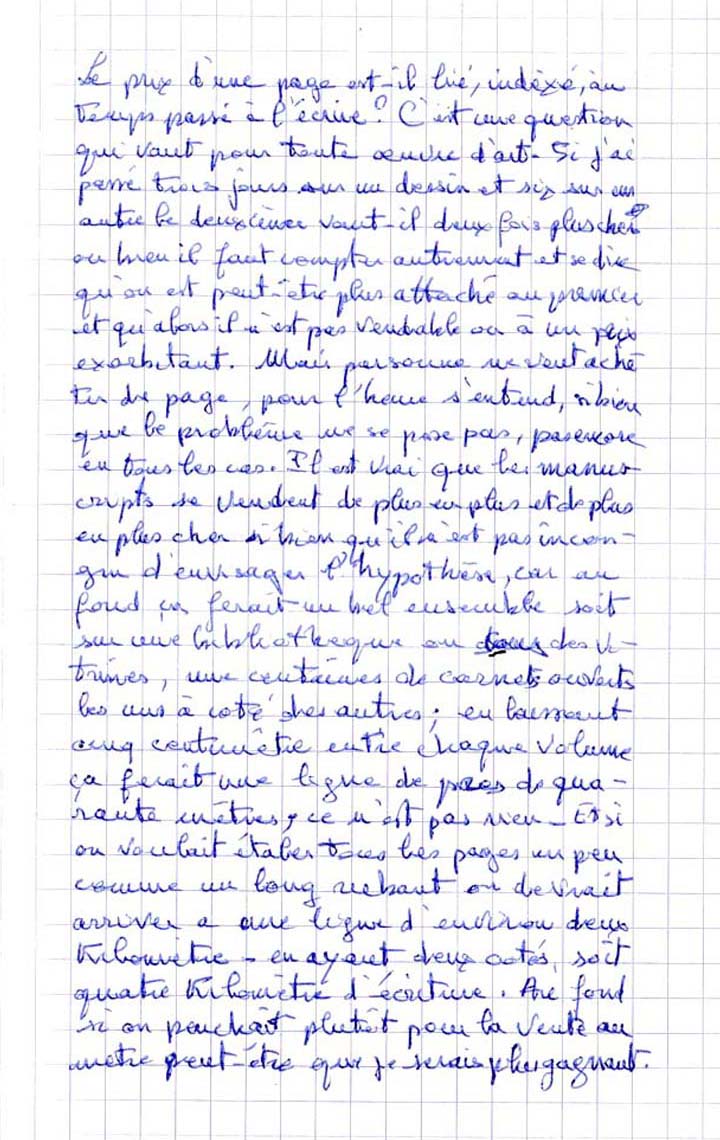 Le prix d'une page est-il lié, indéxé, au
temps passé à l'écrire? C'est une question
qui vaut pour toute œuvre d'art - Si j'ai
passé trois jours sur un dessin et six sur un
autre le deuxième vaut-il deux fois plus cher
ou bien il faut compter autrement et se dire
qu'on est peut-être plus attaché au premier
et qu'alors il n'est pas vendable ou à un prix
exorbitant. Mais personne ne veut ache
ter de page, pour l'heure s'entend, si bien
que le problème ne se pose pas, pas encore
en tous les cas. Il est vrai que les manus-
cripts se vendent de plus en plus et de plus
en plus cher si bien qu'il n'est pas incon-
gru d'envisager l'hypothèse, car au
fond ça ferait un bel ensemble soit
sur une bibliothèque ou des vi-
trines, une centaines de carnets ouverts
les uns à coté des autres; en laissant
cinq centimètre entre chaque volume
ça ferait une ligne de près de qua-
rante mètres, ce n'est pas rien - Et si
on voulait étaler tous les pages un peu
comme un long ruban on devrait
arriver a une ligne d'environ deux
Kilomètre - en ayant deux cotés, soit
quatre Kilomètre d'écriture. Au fond
si on penchait plutôt pour la vente au
mètre peut-être que je serais plus gagnant.